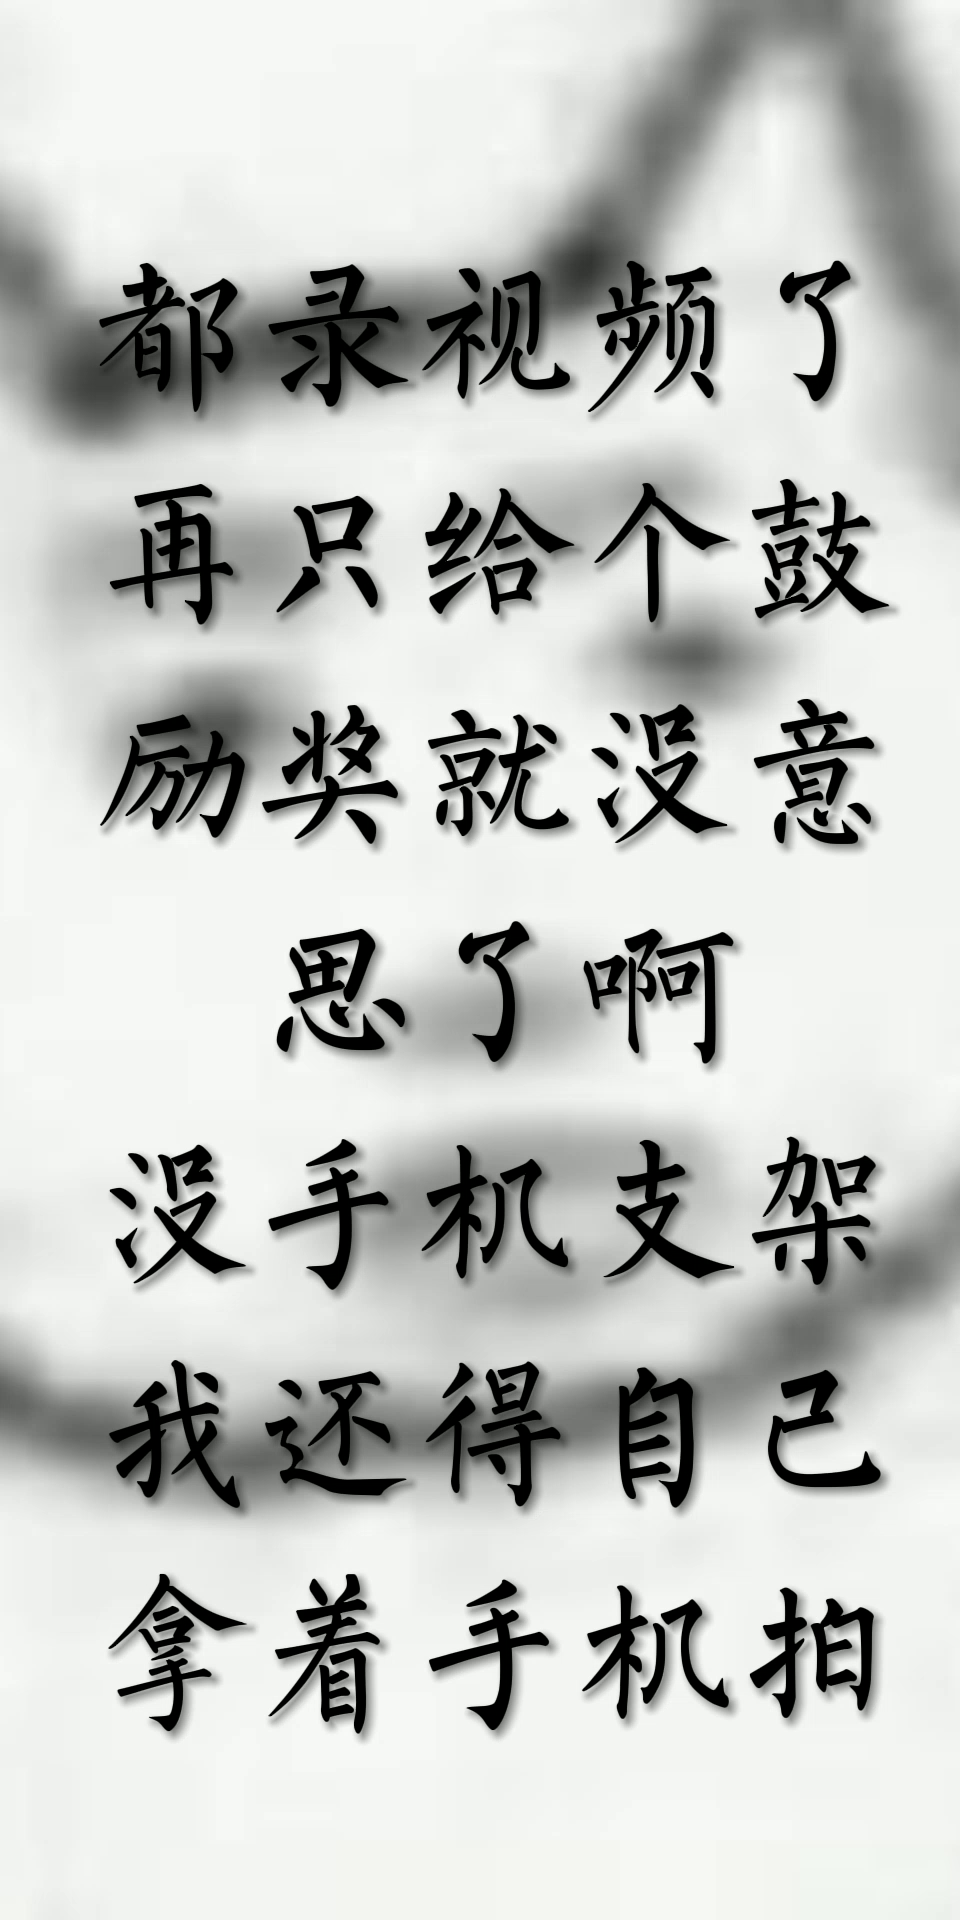 都录视频了
再只给个鼓
励奖就没意
思了啊
没手机支架
我还得自己
拿着手机拍